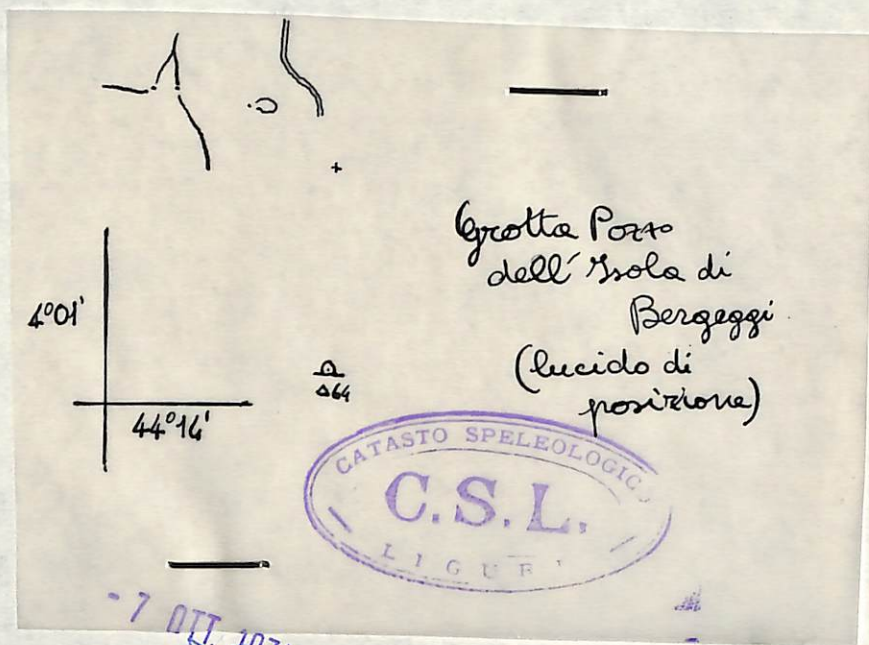 Grotta Pozzo
dell'Isola di
Bergeggi
(lucido di
posizione)
4°01'
44°14'
Δ64
CATASTO SPELEOLOGIC
C.S.L.
LIGUR
-7 OTT. 197